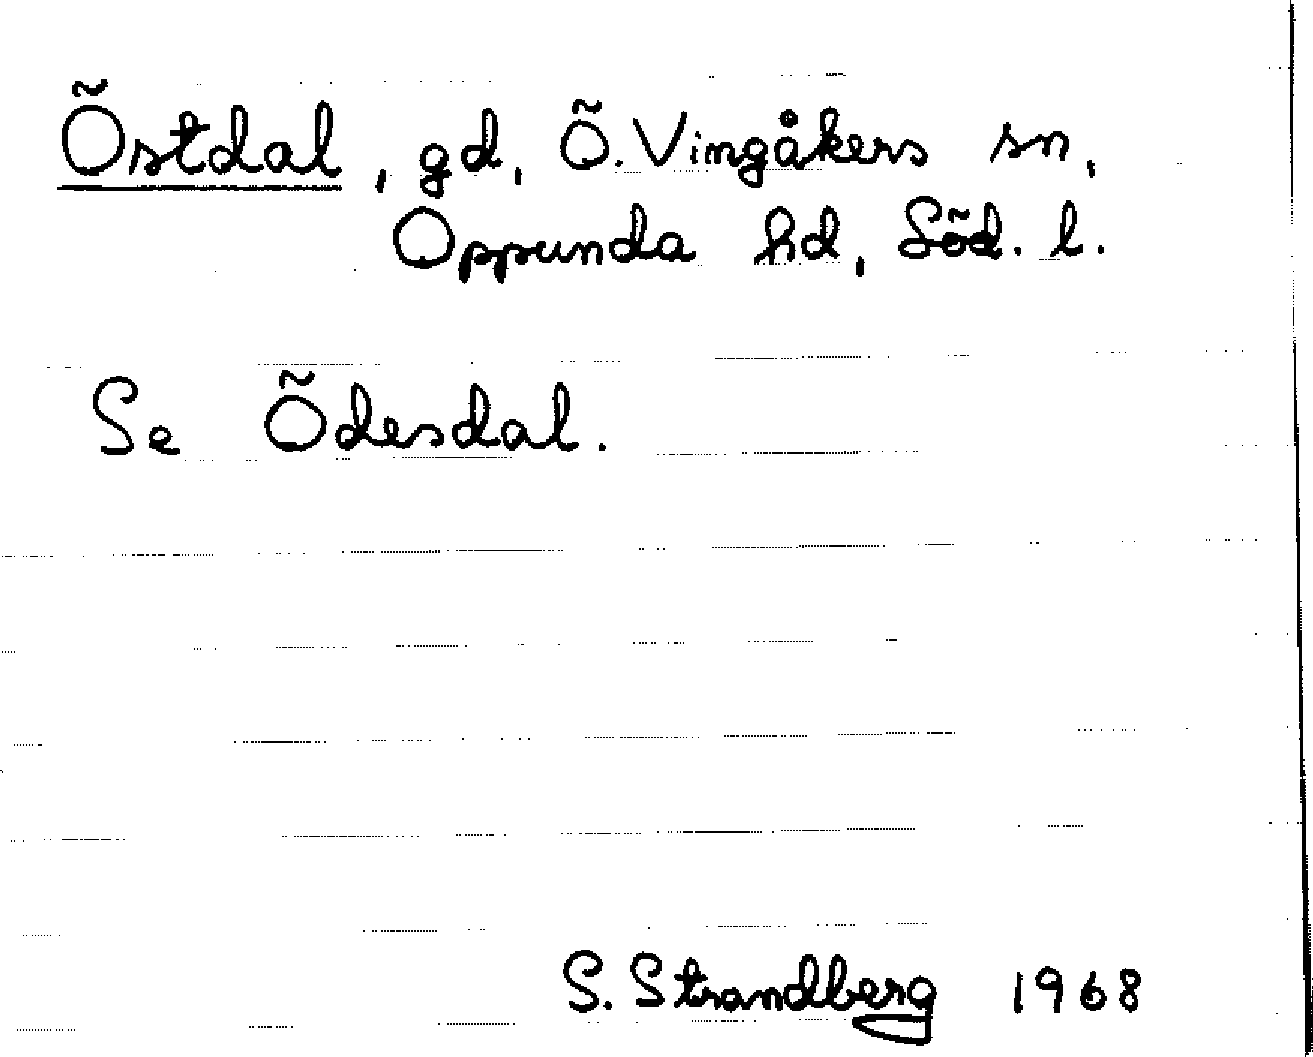 Östdal, gd, Ö. Vingåkers sn,
Oppunda hd, Söd. l.
Se Ödesdal.
S. Strandberg 1968